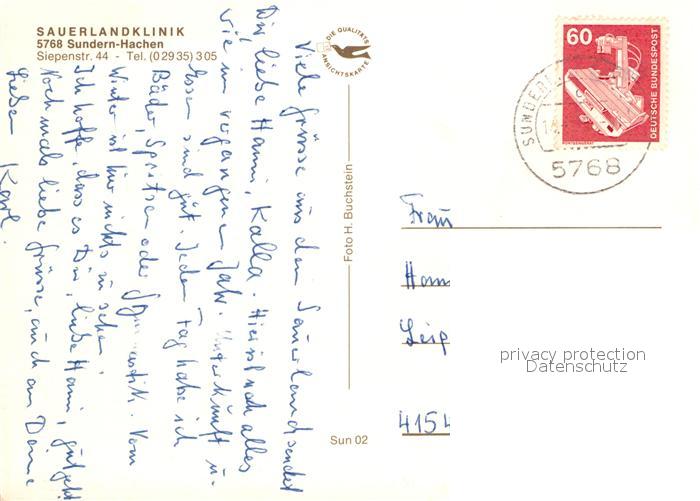 SAUERLANDKLINIK
5768 Sundern-Hachen
Siepenstr. 44 - Tel. (0 29 35) 3 05
DIE QUALITÄTS
ANSICHTSKARTE
Viele Grüsse aus dem Sauerland sendet
Dir, liebe Hanni, Kalla. Hier ist noch alles
wie im vergangenen Jahr. Unterkunft u.
Essen sind gut. Jeden Tag habe ich
Bäder, Spritzen oder Gymnastik. Vom
Winter ist hier nichts zu sehen.
Ich hoffe, dass es Dir, liebe Hanni, gut geht
Nochmals liebe Grüsse, auch an Deine
Lieben
Karl.
Foto H. Buchstein
Sun 02
60
DEUTSCHE BUNDESPOST
SUNDERN
5768
Frau
Hann
Leip
4154
privacy protection
Datenschutz